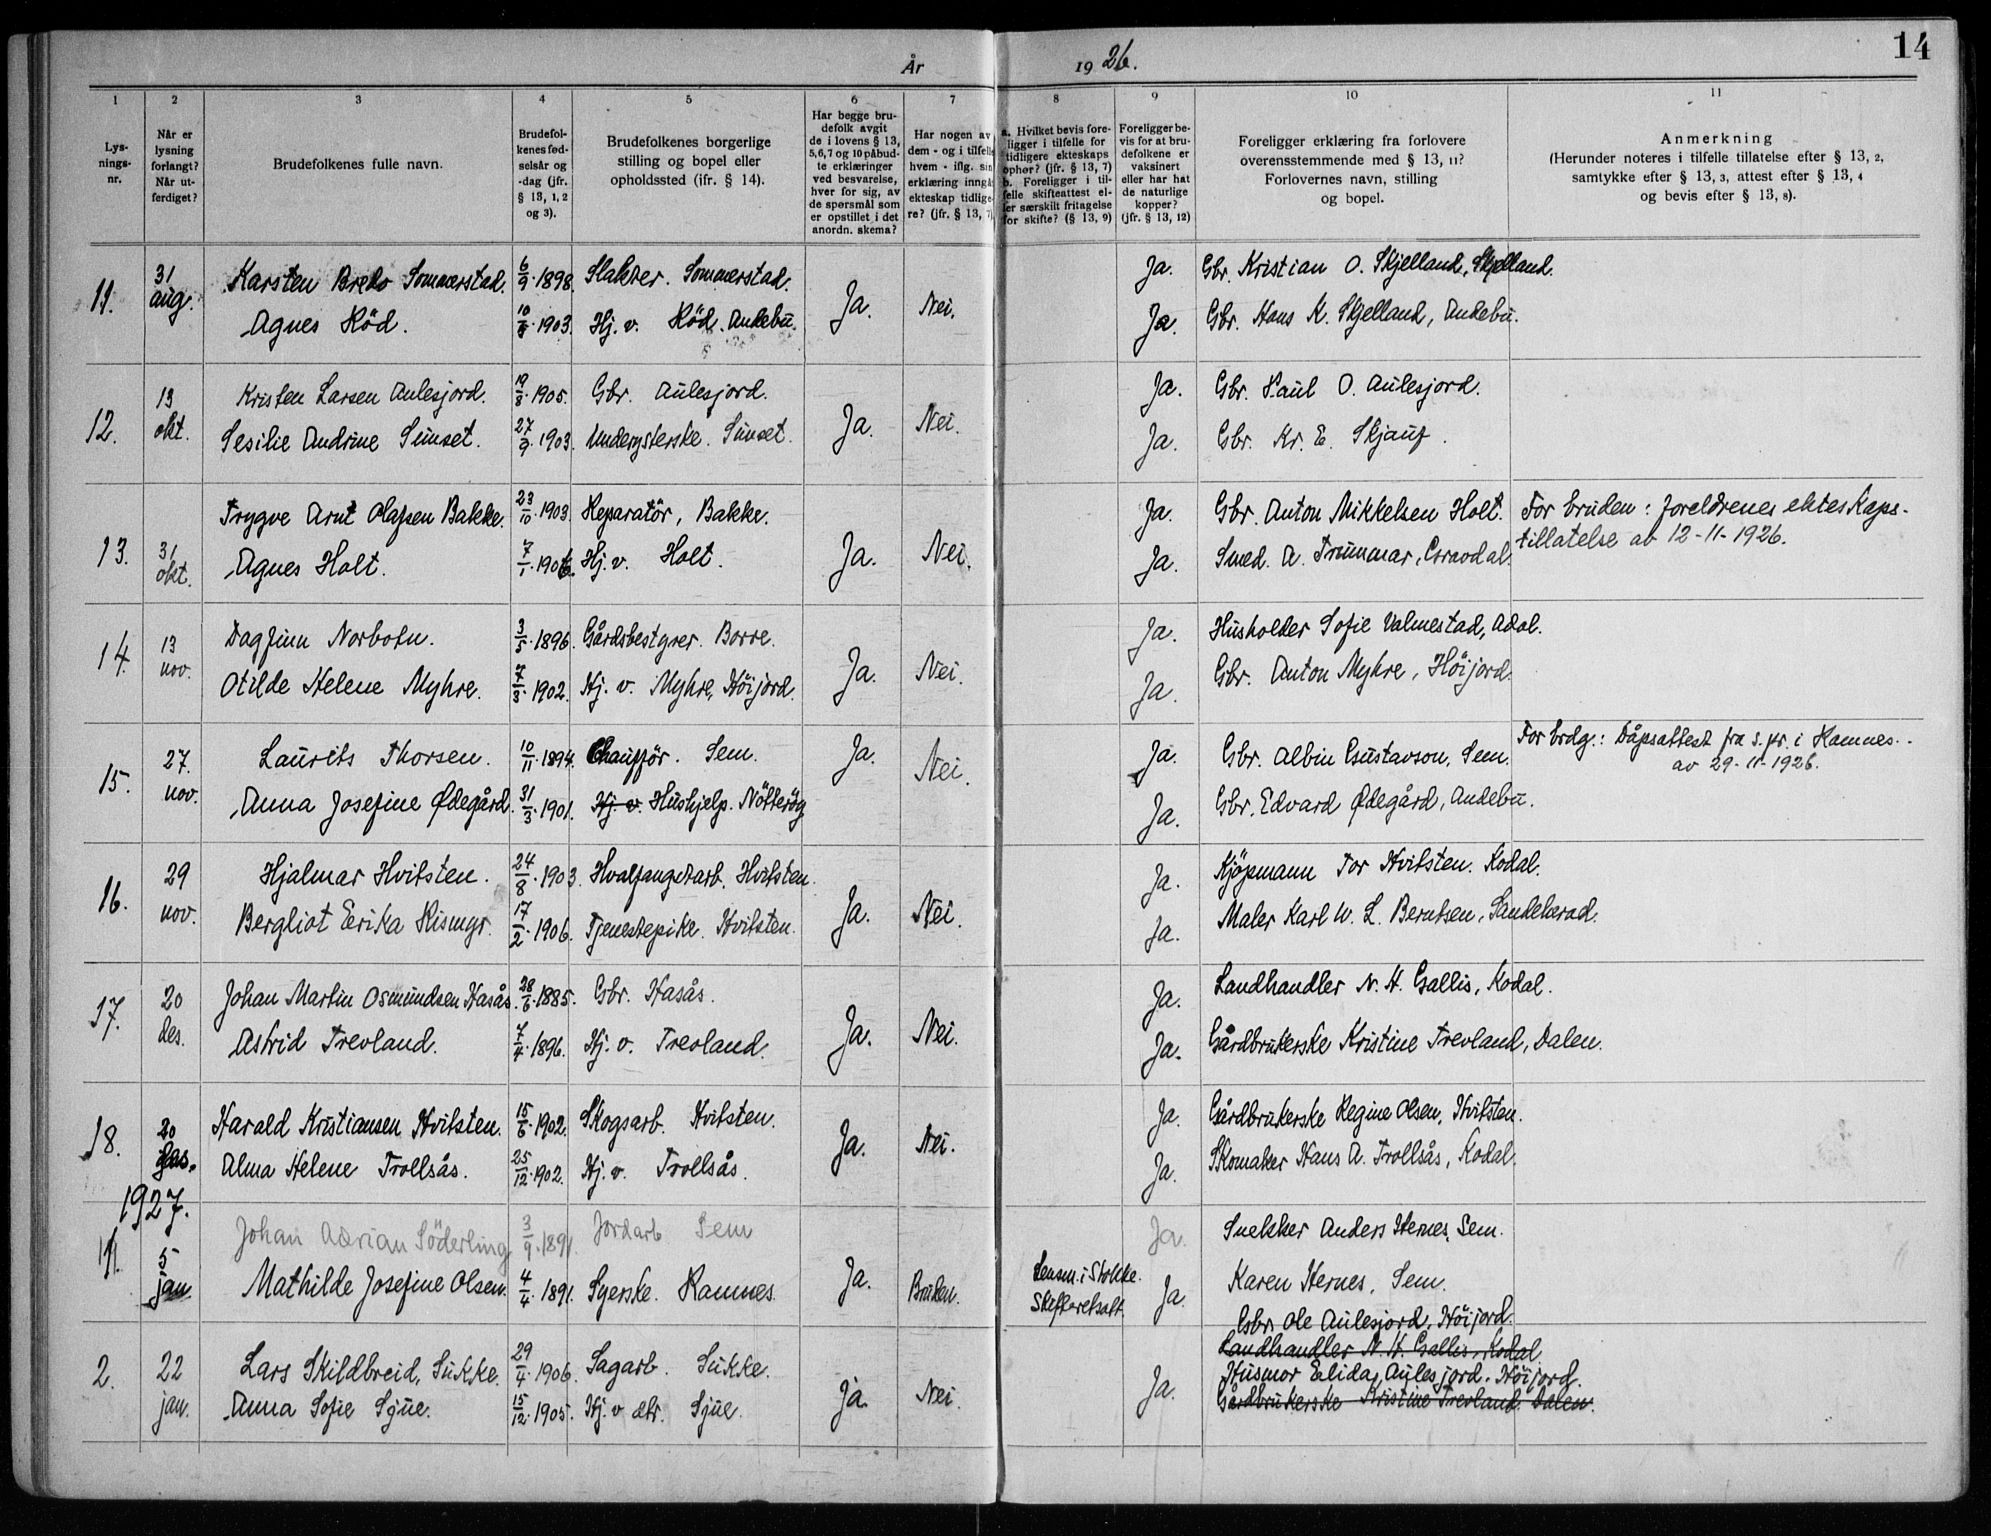 År 1926.
14
1 2 3 4 5 6 7 8 9 10 11
Lys-
nings-
nr.
Når er
lysning
forlangt?
Når ut-
ferdiget?
Brudefolkenes fulle navn.
Brudefol-
kenes fød-
selsår og
-dag (jfr.
§ 13, 1, 2
og 3).
Brudefolkenes borgerlige
stilling og bopel eller
opholdssted (ifr. § 14).
Har begge bru-
defolk avgit
de i lovens § 13,
5,6,7 og 10 påbud-
te erklæringer
ved besvarelse,
hver for sig, av
de spørsmål som
er opstillet i det
anordn. skema?
Har nogen av
dem - og i tilfelle
hvem - iflg. sin
erklæring inngå
ekteskap tidlige-
re? (jfr. § 13, 7)
a. Hvilket bevis fore-
ligger i tilfelle for
tidligere ekteskaps
ophør? (jfr. § 13, 7)
b. Foreligger i til-
felle skifteattest el-
ler særskilt fritagelse
for skifte? (§ 13, 9)
Foreligger be-
vis for at bru-
defolkene er
vaksinert
eller har hat
de naturlige
kopper?
(jfr. § 13, 12)
Foreligger erklæring fra forlovere
overensstemmende med § 13, 11?
Forlovernes navn, stilling
og bopel.
Anmerkning
(Herunder noteres i tilfelle tillatelse efter § 13, 2,
samtykke efter § 13, 3, attest efter § 13, 4
og bevis efter § 13, 8).
11. 31 aug. Karsten Bredo Sommerstad. 6/9.1898. Slakter. Sommerstad. Ja. Nei. Ja. Gbr. Kristian O. Skjelland, Skjelland.
Agnes Röd. 1903. Hj. v. Röd. Andebu. Ja. Gbr. Hans K. Skjelland, Andebu.
12. 13 okt. Kristen Larsen Aulesjord. 1905. Gbr. Aulesjord. Ja. Nei. Ja. Gbr. Paul O. Aulesjord.
Sesilie Andrine Sünset. 27/9.1903. Undergsterske. Sünset. Ja. Gbr. Kr. E. Skjauf.
13. 31 okt. Trygve Arnt Olafsen Bakke. 23/10.1903. Reparatör, Bakke. Ja. Nei. Ja. Gbr. Anton Mikkelsen Holt. For bruden: foreldrenes ekteskaps-
Agnes Holt. 7/1.1906. Hj. v. Holt. Ja. Smed. A. Trummar, Gravdal. tillatelse av 12-11-1926.
14. 13 nov. Dagfinn Norbotn. 3/5.1896. Gårdsbestyrer. Borre. Ja. Nei. Ja. Husholder Sofie Valmestad, Adal.
Otilde Helene Myhre. 7/3.1902. Hj. v. Myhre, Höijord. Ja. Gbr. Anton Myhre, Höijord.
15. 27. nov. Laurits Thorsen. 10/11.1894. Chaufför. Sem. Ja. Nei. Ja. Gbr. Albin Gustavson, Sem. For brdg.: Dåpsattest fra s.pr. i Ramnes.
Anna Josefine Ødegård. 31/3.1901. Hj. v. Hushjelp. Nötteröy Ja. Gbr. Edvard Ødegård, Andebu. av 29-11-1926.
16. 29 nov. Hjalmar Hvitsten. 24/8.1903. Hvalfangstarb. Hvitsten. Ja. Nei. Ja. Kjöpmann Tor Hvitsten. Kodal.
Bergliot Erika Rismyr. 17/2.1906. Tjenestepike. Hvitsten. Ja. Maler Karl W. L. Berntsen, Sandeherad.
17. 20 des. Johan Martin Osmundsen Hasås. 28/6.1885. Gbr. Hasås. Ja. Nei. Ja. Landhandler N. H. Gallis, Kodal.
Astrid Trevland. 7/4.1896. Hj. v. Trevland. Ja. Gårdbrukerske Kristine Trevland, Dalen.
18. 20 des. Harald Kristiansen Hvitsten. 15/6.1902. Skogsarb. Hvitsten. Ja. Nei. Ja. Gårdbrukerske Regine Olsen, Hvitsten.
Alma Helene Trollsås. 25/12.1902. Hj. v. Trollsås. Ja. Skomaker Hans A. Trollsås, Kodal.
1927.
1. 5 jan Johan Adrian Söderling 3/9.1891. Jordarb Sem Ja. Snekker Anders Hernes, Sem.
Mathilde Josefine Olsen. 4/4.1891. Syerske. Ramnes Ja. Bruden. Lensm. i Stokke. Skifteretsatt. Ja. Karen Hernes, Sem.
Gbr. Ole Aulesjord, Höijord.
Landhandler N. H. Gallis, Kodal
2. 22 jan. Lars Skildbreid, Sukke. 29/4.1906. Sagarb. Sukke. ja. Nei. Ja. Husmor Elida Aulesjord. Höijord.
Anna Sofie Sjue. 15/12.1905. Hj. v dtr. Sjue. Gårdbrukerske Kristine Trevland. Dalen.